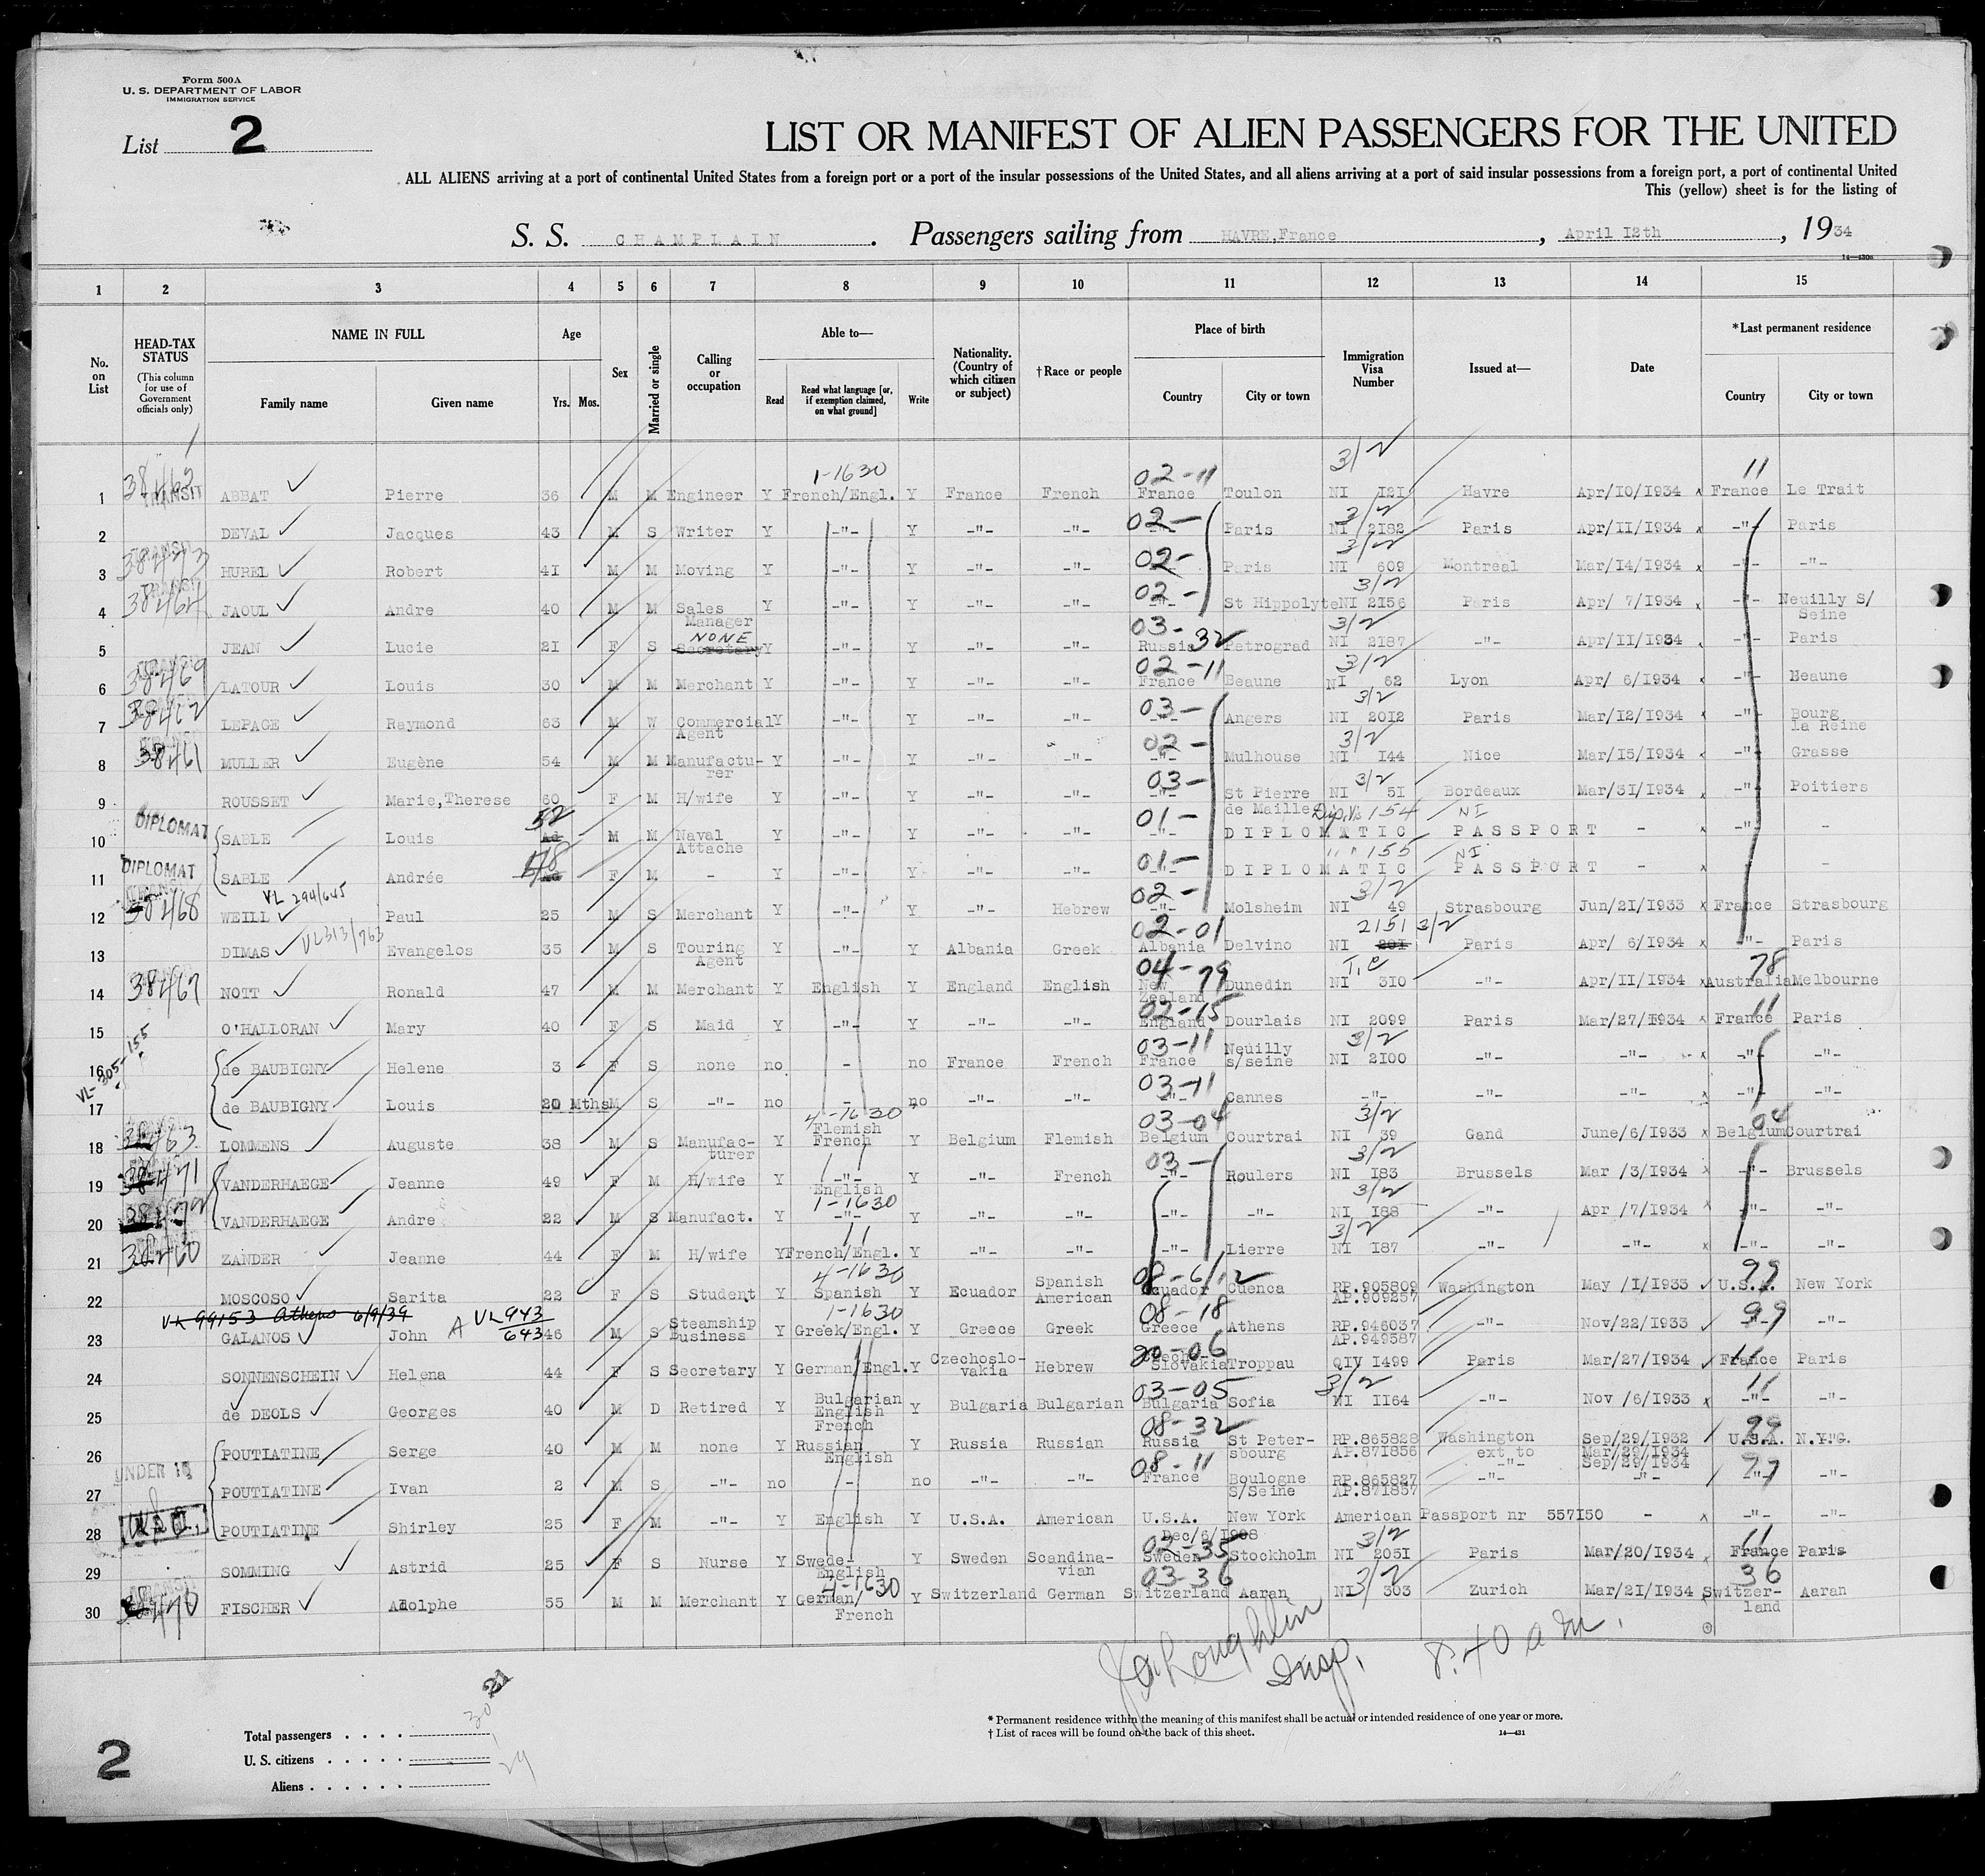 Form 500A
U. S. DEPARTMENT OF LABOR
IMMIGRATION SERVICE
List 2
LIST OR MANIFEST OF ALIEN PASSENGERS FOR THE UNITED
ALL ALIENS arriving at a port of continental United States from a foreign port or a port of the insular possessions of the United States, and all aliens arriving at a port of said insular possessions from a foreign port, a port of continental United
This (yellow) sheet is for the listing of
S. S. CHAMPLAIN. Passengers sailing from HAVRE, France, April I2th, 1934
1 2 3 4 5 6 7 8 9 10 11 12 13 14 15
No. on List
HEAD-TAX STATUS (This column for use of Government officials only)
NAME IN FULL Family name Given name
Age Yrs. Mos.
Sex
Married or single
Calling or occupation
Able to— Read Read what language [or, if exemption claimed, on what ground] Write
Nationality. (Country of which citizen or subject)
†Race or people
Place of birth Country City or town
Immigration Visa Number
Issued at—
Date
*Last permanent residence Country City or town
1-1630 02-11 3/2 11
1 TRANSIT ABBAT Pierre 36 M M Engineer Y French/Engl. Y France French France Toulon NI I2I Havre Apr/I0/I934 x France Le Trait
2 DEVAL Jacques 43 M S Writer Y -"- Y -"- -"- 02- Paris NI 2I82 Paris Apr/II/I934 x -"- Paris
3 38473 HUREL Robert 4I M M Moving Y -"- Y -"- -"- 02- Paris NI 609 Montreal Mar/I4/I934 x -"- -"-
4 38464 JAOUL Andre 40 M M Sales Manager Y -"- Y -"- -"- 02- St Hippolyte NI 2I56 Paris Apr/ 7/I934 -"- Neuilly S/ Seine
5 JEAN Lucie 2I F S NONE Secretary Y -"- Y -"- -"- 03-32 Russia Petrograd NI 2I87 -"- Apr/II/I934 -"- Paris
6 38469 LATOUR Louis 30 M M Merchant Y -"- Y -"- -"- 02-11 France Beaune NI 62 Lyon Apr/ 6/I934 -"- Beaune
7 LEPAGE Raymond 63 M W Commercial Agent Y -"- Y -"- -"- 03- Angers NI 20I2 Paris Mar/I2/I934 x -"- Bourg la Reine
8 38461 MULLER Eugène 54 M M Manufacturer Y -"- Y -"- -"- 02- Mulhouse NI I44 Nice Mar/I5/I934 -"- Grasse
9 ROUSSET Marie,Therese 60 F M H/wife Y -"- Y -"- -"- 03- St Pierre de Maille NI 5I Bordeaux Mar/3I/I934 x -"- Poitiers
10 DIPLOMAT SABLE Louis 52 M M Naval Attache Y -"- Y -"- -"- 01- DIPLOMATIC PASSPORT 154 NI - x -"- -
11 DIPLOMAT SABLE Andrée F M - Y -"- Y -"- -"- 01- DIPLOMATIC PASSPORT 155 NI - x -
12 38468 WEILL VL 294/645 Paul 25 M S Merchant Y -"- Y -"- Hebrew 02- Molsheim NI 49 Strasbourg Jun/2I/I933 x France Strasbourg
13 DIMAS VL313/963 Evangelos 35 M S Touring Agent Y -"- Y Albania Greek 02-01 Albania Delvino NI 2151 3/2 Paris Apr/ 6/I934 x -"- Paris
14 38467 NOTT Ronald 47 M M Merchant Y English Y England English 04-79 New Zealand Dunedin NI 3I0 -"- Apr/II/I934 x Australia Melbourne 78
15 O'HALLORAN Mary 40 F S Maid Y -"- Y -"- -"- 02-15 England Dourlais NI 2099 Paris Mar/27/I934 x France 11 Paris
16 VL-305-155 de BAUBIGNY Helene 3 F S none no - no France French 03-11 France Neuilly s/seine NI 2I00 -"- -"- x -"- -"-
17 de BAUBIGNY Louis 20 Mths M S -"- no - no -"- -"- 03-11 Cannes -"- -"- -"- x -"- -"-
18 LOMMENS Auguste 38 M S Manufacturer Y 4-1630 Flemish French Y Belgium Flemish 03-04 Belgium Courtrai NI 39 Gand June/6/I933 x Belgium 04 Courtrai
19 VANDERHAEGE Jeanne 49 F M H/wife Y -"- English Y -"- French 03- Roulers NI I83 Brussels Mar /3/I934 x -"- Brussels
20 VANDERHAEGE Andre 22 M S Manufact. Y 1-1630 -"- Y -"- -"- -"- -"- NI I88 -"- Apr /7/I934 x -"- -"-
21 38460 ZANDER Jeanne 44 F M H/wife Y French/Engl. Y -"- -"- -"- Lierre NI I87 -"- -"- x -"- -"-
22 MOSCOSO Sarita 22 F S Student Y 4-1630 Spanish Y Ecuador Spanish American Ecuador Cuenca RP.905809 AP.909257 Washington May /I/I933 U.S.A. 99 New York
VL 99153 Athens 6/9/39 A VL 943/643
23 GALANOS John 46 M S Steamship Business Y 1-1630 Greek/Engl. Y Greece Greek 08-18 Greece Athens RP.946037 AP.949587 -"- Nov/22/I933 99 -"-
24 SONNENSCHEIN Helena 44 F S Secretary Y German Engl. Y Czechoslovakia Hebrew 20-06 Slovakia Troppau QIV I499 Paris Mar/27/I934 France Paris
25 de DEOLS Georges 40 M D Retired Y Bulgarian English French Y Bulgaria Bulgarian 03-05 Bulgaria Sofia NI II64 -"- Nov /6/I933 x -"- 11 -"-
26 POUTIATINE Serge 40 M M none Y Russian English Y Russia Russian 08-32 Russia St Petersbourg RP.865828 AP.871856 Washington ext to -"- Sep/29/I932 Mar/29/I934 Sep/29/I934 U.S.A. 99
27 UNDER 16 POUTIATINE Ivan 2 M S -"- no - no -"- -"- 08-11 France Boulogne S/Seine RP.865827 AP.871857 -"- -"- -"-
28 POUTIATINE Shirley 25 F M -"- Y English Y U.S.A. American U.S.A. New York Dec/6/I908 American Passport nr 557I50 - x -"- -"-
29 SOMMING Astrid 25 F S Nurse Y Swede- English Y Sweden Scandinavian 02-35 Sweden Stockholm NI 205I Paris Mar/20/I934 France 11 Paris
30 FISCHER Adolphe 55 M M Merchant Y 4-1630 German/ French Y Switzerland German 03-36 Switzerland Aaran NI 303 Zurich Mar/2I/I934 Switzerland 36 Aaran
Insp. 8:40 a m.
* Permanent residence within the meaning of this manifest shall be actual or intended residence of one year or more.
† List of races will be found on the back of this sheet.
14—431
Total passengers 30
U. S. citizens 1
Aliens 29
2